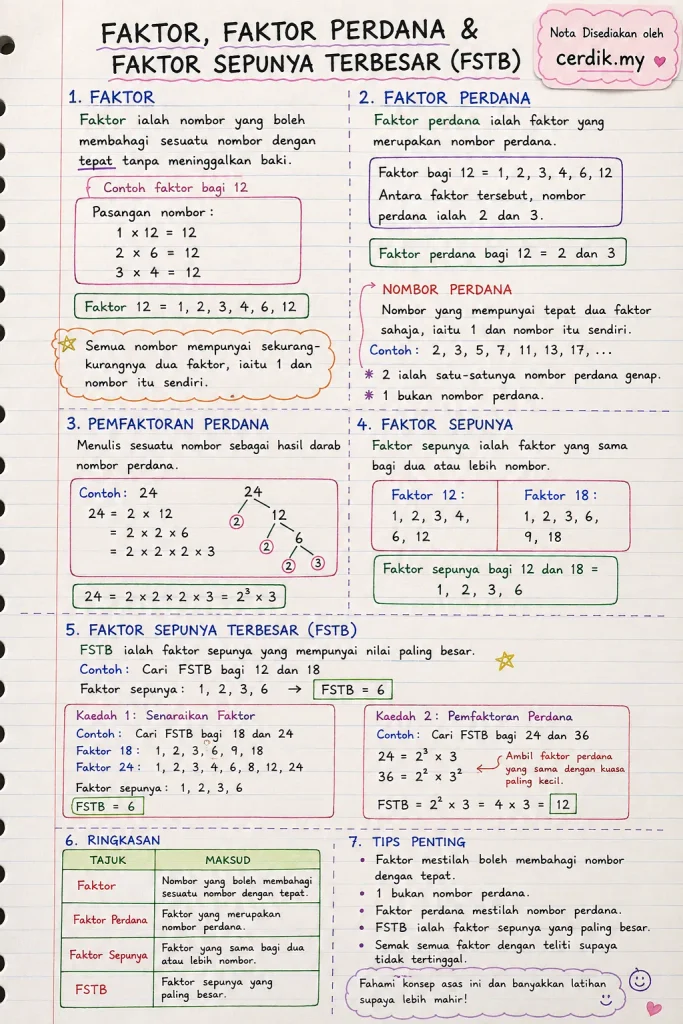 FAKTOR, FAKTOR PERDANA &
FAKTOR SEPUNYA TERBESAR (FSTB)
Nota Disediakan oleh
cerdik.my
1. FAKTOR
Faktor ialah nombor yang boleh
membahagi sesuatu nombor dengan
tepat tanpa meninggalkan baki.
Contoh faktor bagi 12
Pasangan nombor:
1 x 12 = 12
2 x 6 = 12
3 x 4 = 12
Faktor 12 = 1, 2, 3, 4, 6, 12
Semua nombor mempunyai sekurang-
kurangnya dua faktor, iaitu 1 dan
nombor itu sendiri.
2. FAKTOR PERDANA
Faktor perdana ialah faktor yang
merupakan nombor perdana.
Faktor bagi 12 = 1, 2, 3, 4, 6, 12
Antara faktor tersebut, nombor
perdana ialah 2 dan 3.
Faktor perdana bagi 12 = 2 dan 3
NOMBOR PERDANA
Nombor yang mempunyai tepat dua faktor
sahaja, iaitu 1 dan nombor itu sendiri.
Contoh: 2, 3, 5, 7, 11, 13, 17, ...
* 2 ialah satu-satunya nombor perdana genap.
* 1 bukan nombor perdana.
3. PEMFAKTORAN PERDANA
Menulis sesuatu nombor sebagai hasil darab
nombor perdana.
Contoh: 24
24 = 2 x 12
= 2 x 2 x 6
= 2 x 2 x 2 x 3
24
2 12
2 6
2 3
24 = 2 x 2 x 2 x 3 = 2³ x 3
4. FAKTOR SEPUNYA
Faktor sepunya ialah faktor yang sama
bagi dua atau lebih nombor.
Faktor 12:
1, 2, 3, 4,
6, 12
Faktor 18:
1, 2, 3, 6,
9, 18
Faktor sepunya bagi 12 dan 18 =
1, 2, 3, 6
5. FAKTOR SEPUNYA TERBESAR (FSTB)
FSTB ialah faktor sepunya yang mempunyai nilai paling besar.
Contoh: Cari FSTB bagi 12 dan 18
Faktor sepunya: 1, 2, 3, 6 → FSTB = 6
Kaedah 1: Senaraikan Faktor
Contoh: Cari FSTB bagi 18 dan 24
Faktor 18: 1, 2, 3, 6, 9, 18
Faktor 24: 1, 2, 3, 4, 6, 8, 12, 24
Faktor sepunya: 1, 2, 3, 6
FSTB = 6
Kaedah 2: Pemfaktoran Perdana
Contoh: Cari FSTB bagi 24 dan 36
24 = 2³ x 3
36 = 2² x 3²
Ambil faktor perdana
yang sama dengan kuasa
paling kecil.
FSTB = 2² x 3 = 4 x 3 = 12
6. RINGKASAN
TAJUK MAKSUD
Faktor
Nombor yang boleh membahagi
sesuatu nombor dengan tepat.
Faktor Perdana
Faktor yang merupakan
nombor perdana.
Faktor Sepunya
Faktor yang sama bagi dua
atau lebih nombor.
FSTB
Faktor sepunya yang
paling besar.
7. TIPS PENTING
• Faktor mestilah boleh membahagi nombor
dengan tepat.
• 1 bukan nombor perdana.
• Faktor perdana mestilah nombor perdana.
• FSTB ialah faktor sepunya yang paling besar.
• Semak semua faktor dengan teliti supaya
tidak tertinggal.
Fahami konsep asas ini dan banyakkan latihan
supaya lebih mahir!